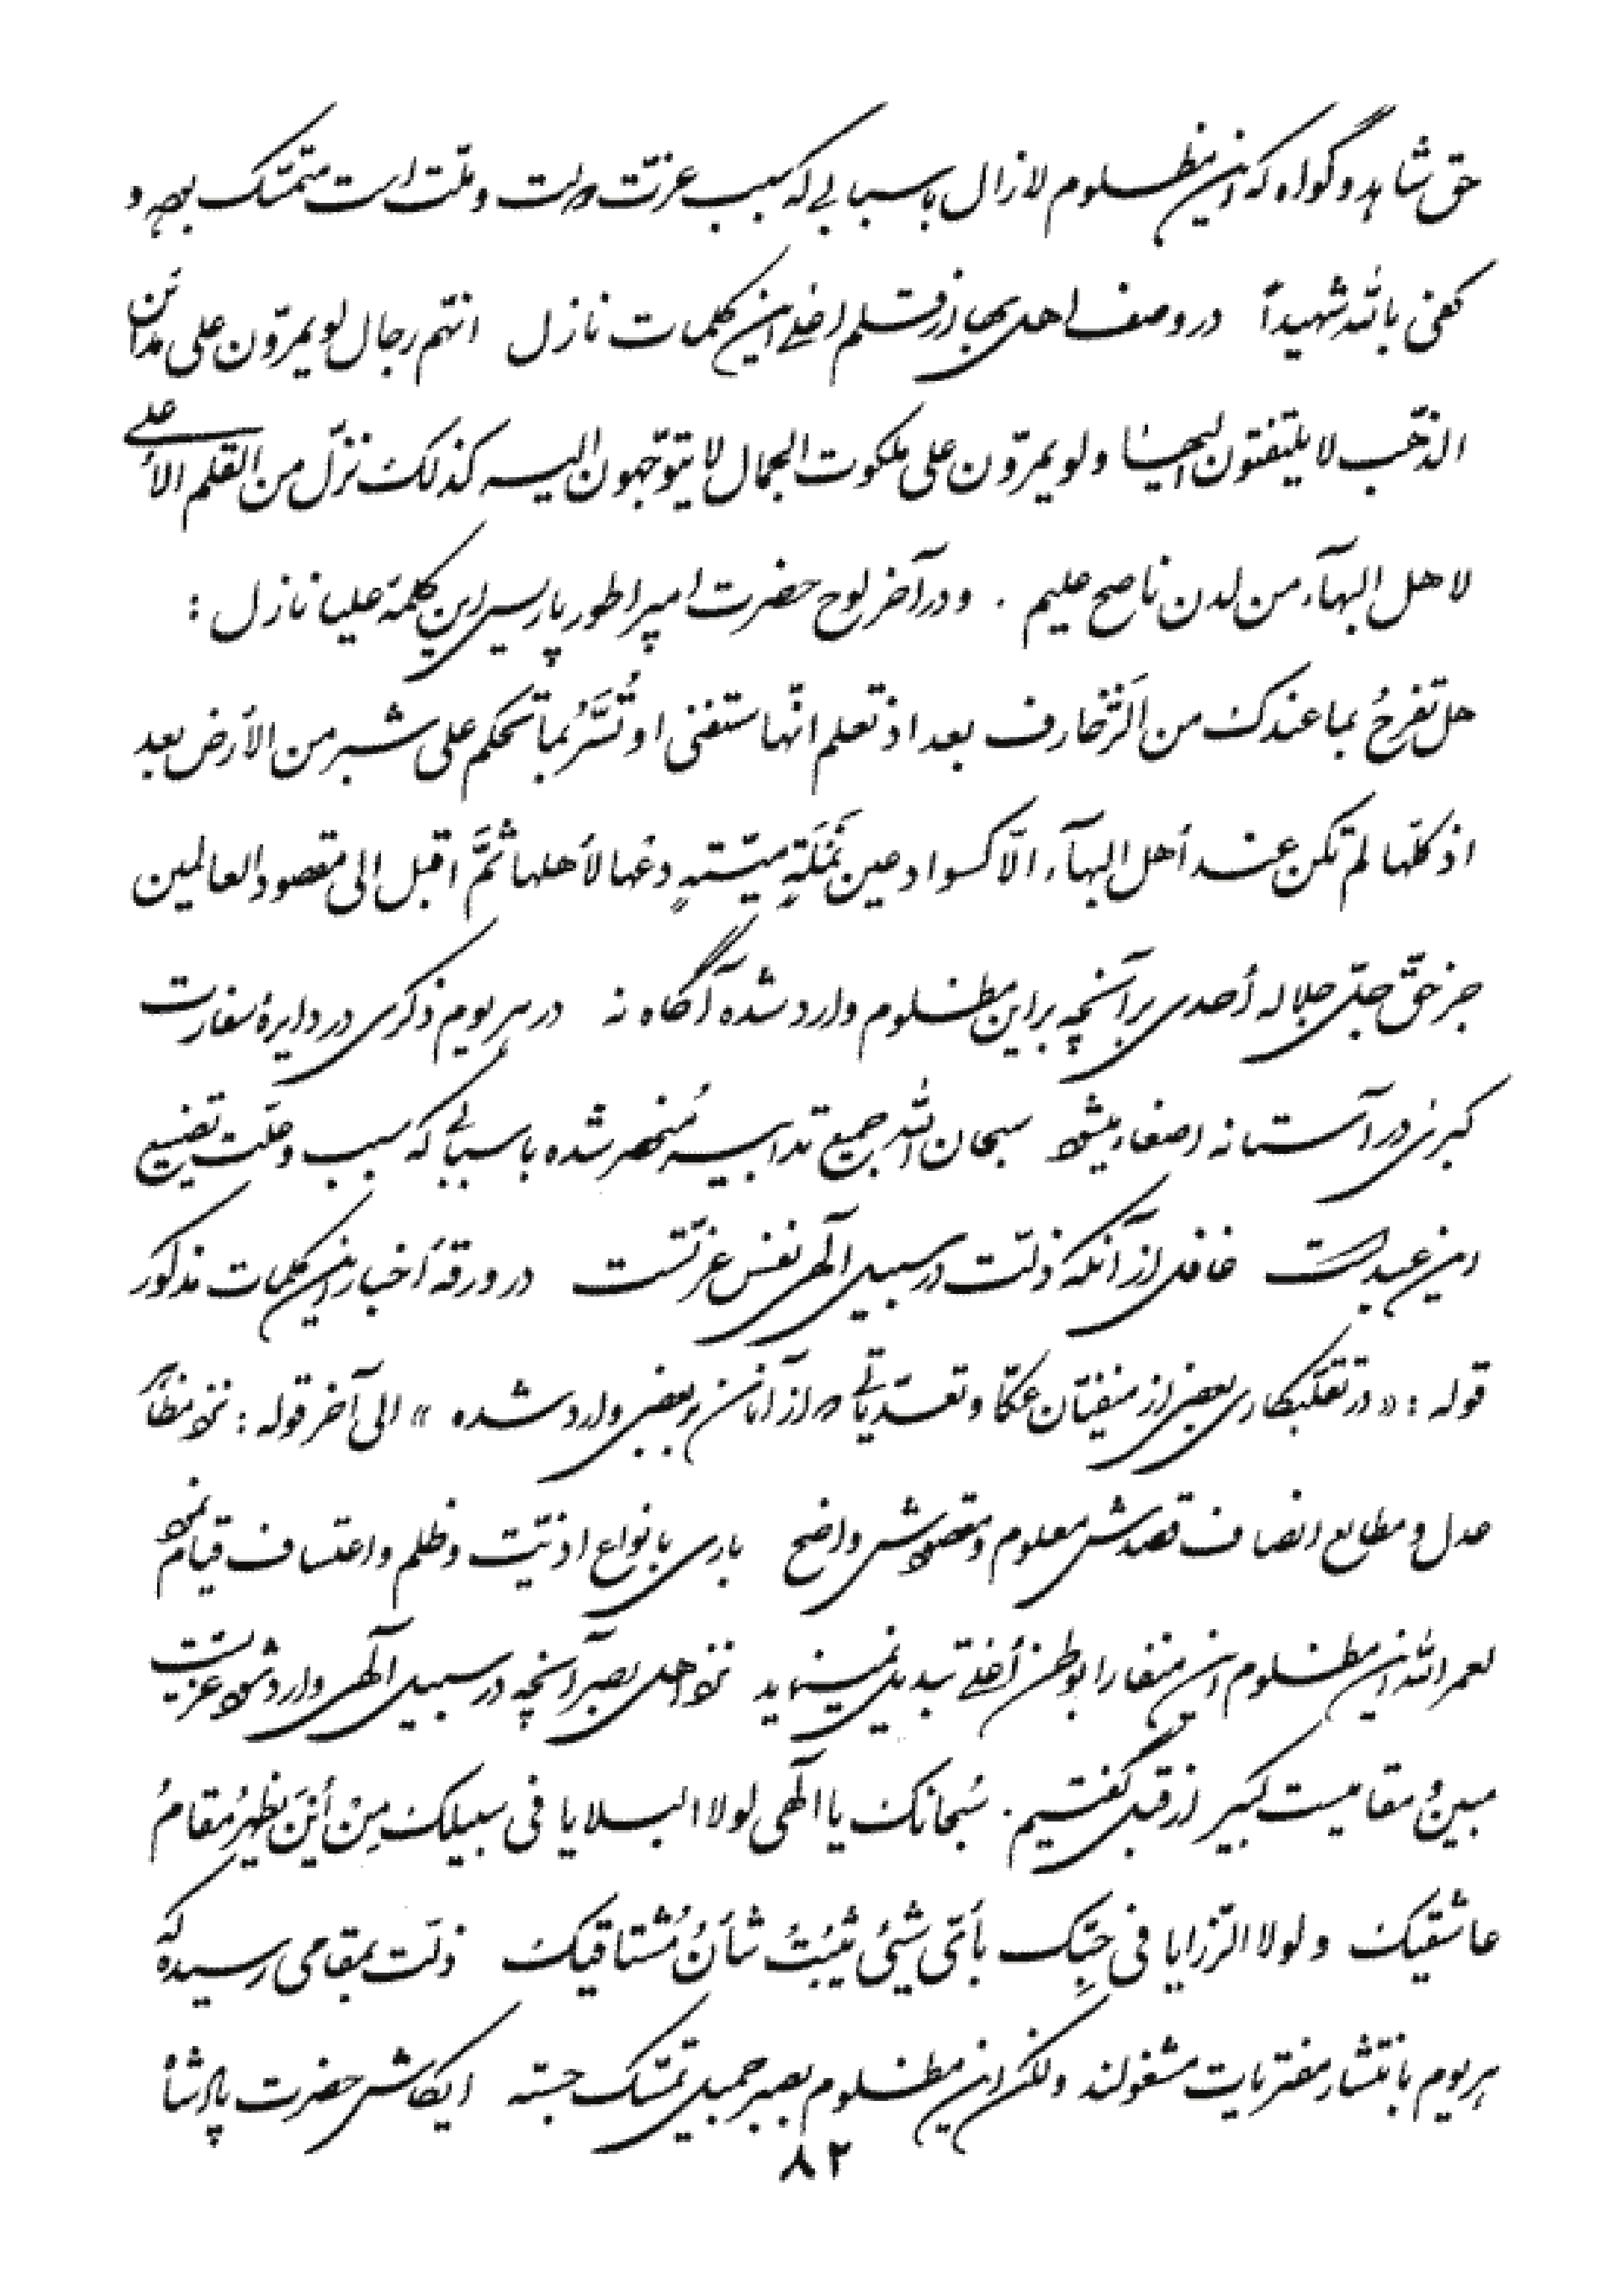 حق شاهد و گواه که این مظلوم لازال باسبابی که سبب عزّت دولت و ملّت است متمسّک بوده و
کفی باللّه شهیداً در وصف اهل بها از قلم اعلی این کلمات نازل انّهم رجال لو یمرّون علی مدائن
الذّهب لا یلتفتون الیها ولو یمرّون علی ملکوت الجمال لا یتوجّهون الیه کذلک نزّل من القلم الأعلی
لاهل البهآء من لدن ناصح علیم . و در آخر لوح حضرت امپراطور پاریس این کلمهٔ علیا نازل :
هل تفرحُ بما عندک من الزّخارف بعد اذ تعلم انّها ستفنی او تُسَرُّ بما تحکم علی شبر من الأرض بعد
اذ کلّها لم تکن عند أهل البهآء الّا کسواد عین نَمْلَةٍ میّتةٍ دعها لأهلها ثمَّ اقبل الی مقصود العالمین
جز حقّ جلّ جلاله أحدی بر آنچه بر این مظلوم وارد شده آگاه نه در هر یوم ذکری در دایرهٔ سفارت
کبری در آستانه اصغاء میشود سبحان اللّه جمیع تدابیر مُنحصر شده باسبابی که سبب و علّت تضییع
این عبد است غافل از آنکه ذلّت در سبیل الهی نفس عزّتست در ورقهٔ أخبار این کلمات مذکور
قوله : « در تقلّبکاری بعضی از منفیّان عکّا و تعدّیاتی که از آنان بر بعضی وارد شده » الی آخر قوله : نزد مظاهر
عدل و مطالع انصاف قصدش معلوم و مقصودش واضح باری بانواع اذیّت و ظلم و اعتساف قیام نمود
لعمر اللّه این مظلوم این منفا را بوطن أعلی تبدیل نمینماید نزد اهل بصر آنچه در سبیل الهی وارد شود عزّیست
مبین و مقامیست کبیر از قبل گفتیم . سُبحانک یا الهی لولا البلایا فی سبیلک مِنْ أیْنَ یظهرُ مقامُ
عاشقیک ولولا الرّزایا فی حبّک بأیّ شیئٍ یثبُتُ شأنُ مُشتاقیک ذلّت بمقامی رسیده که
هر یوم بانتشار مفتریات مشغولند ولکن این مظلوم بصبر جمیل تمسّک جسته ایکاش حضرت پادشاه
٨٢